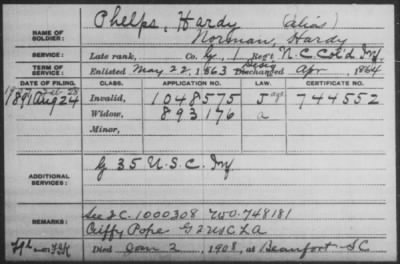 NAME OF SOLDIER: Phelps, Hardy (alias)
Norman, Hardy
SERVICE: Late rank, Co. G, 1 Reg't N.C. Col'd Inf.
TERM OF SERVICE: Enlisted May 22, 1863 Discharged Apr, 1864
DATE OF FILING. CLASS. APPLICATION NO. LAW. CERTIFICATE NO.
1891 Aug 24 Invalid, 1048575 J 744552
Widow, 893176 a
Minor,
ADDITIONAL SERVICES: G 35 U.S.C. Inf
REMARKS: See I C. 1000308 WO. 748181
Pope G 2 USCLA
Died Jan 2, 1908, at Beaufort SC